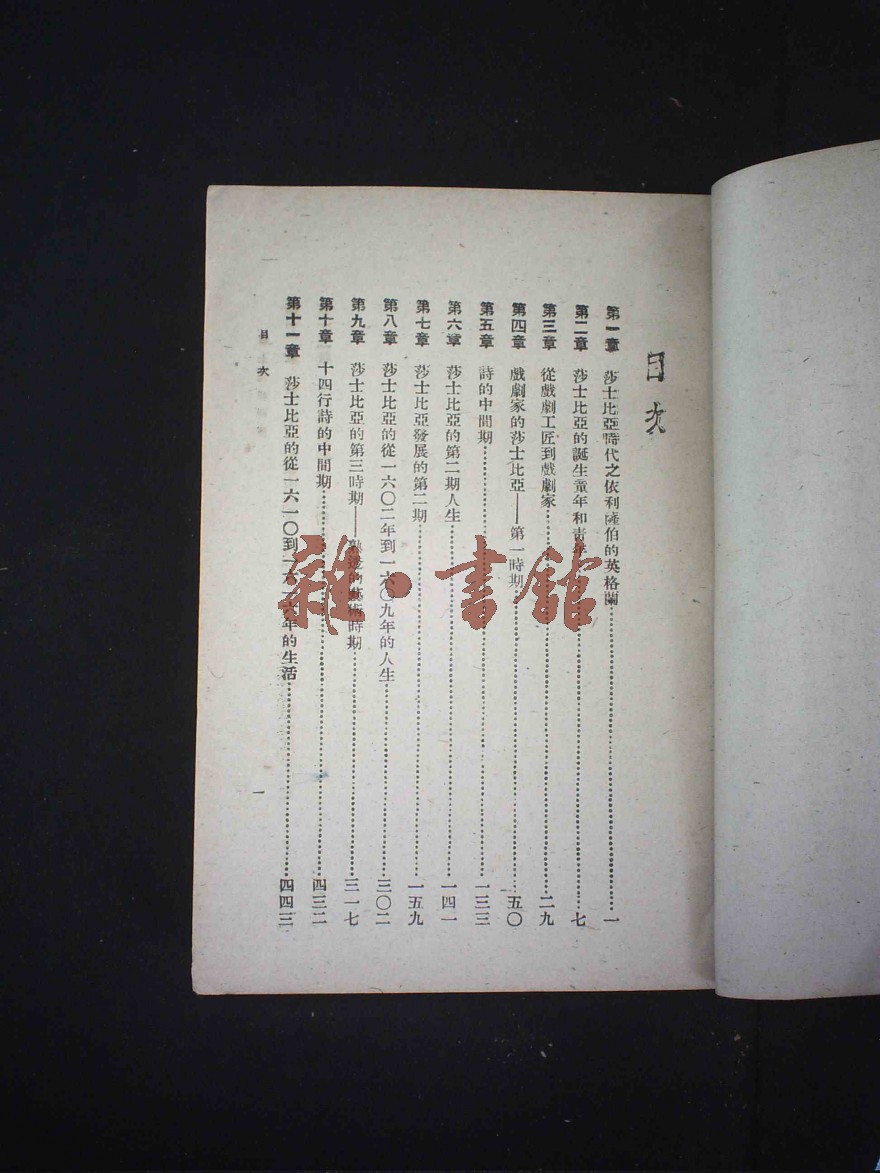 目次
第一章 莎士比亞時代之依利薩伯的英格蘭 一
第二章 莎士比亞的誕生童年和青年 七
第三章 從戲劇工匠到戲劇家 二九
第四章 戲劇家的莎士比亞——第一時期 五〇
第五章 詩的中間期 一三三
第六章 莎士比亞的第二期人生 一四一
第七章 莎士比亞發展的第二期 一五九
第八章 莎士比亞的從一六〇二年到一六〇九年的人生 三〇二
第九章 莎士比亞的第三時期——熟透的藝術時期 三一七
第十章 十四行詩的中間期 四三二
第十一章 莎士比亞的從一六一〇到一六一六年的生活 四四三
目次
一
雜·書館